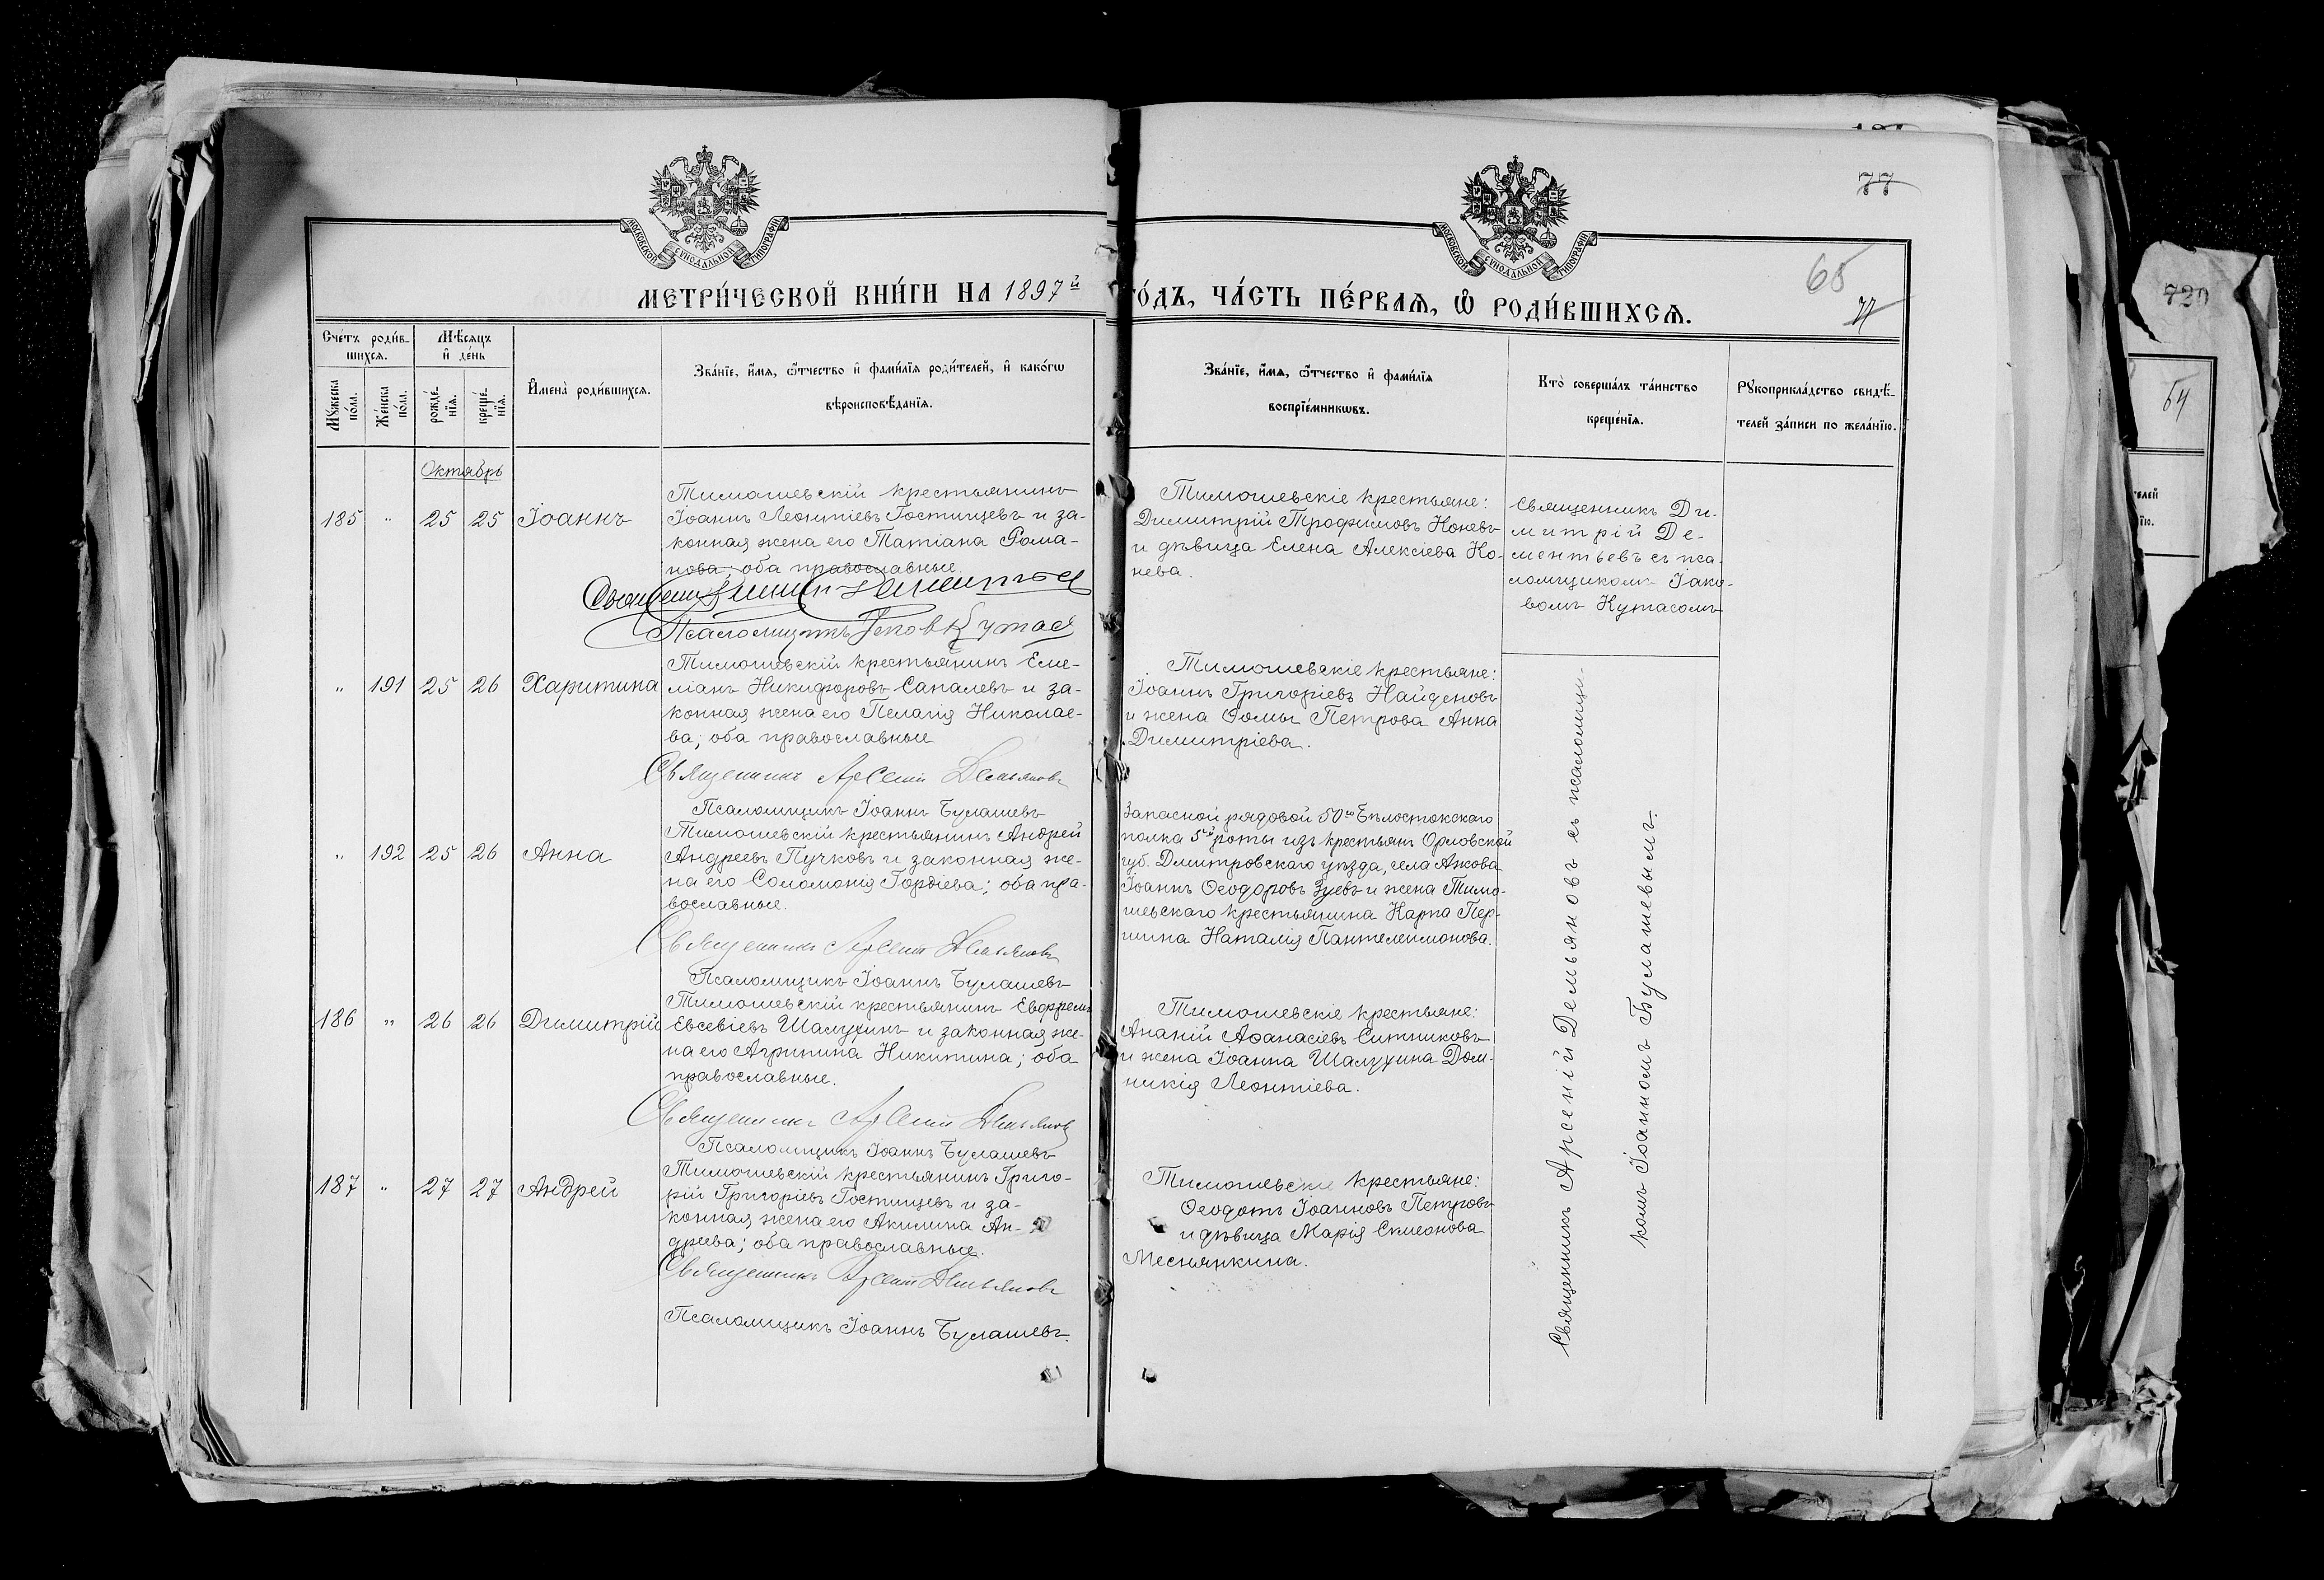 МОСКОВСКОЙ СѴНОДАЛЬНОЙ ТИПОГРАФІИ
МОСКОВСКОЙ СѴНОДАЛЬНОЙ ТИПОГРАФІИ
77
65
77
720
64
МЕТРИ́ЧЕСКОЙ КНИ́ГИ НА 1897й
ГО́ДЪ, ЧА́СТЬ ПЕ́РВАѦ, Ѽ РОДИ́ВШИХСѦ.
Сче́тъ роди́в-
шихсѧ.
Мѣ́сѧцъ
и҆ де́нь
Мꙋ́жеска
по́ла.
Же́нска
по́ла.
рожде́-
нїѧ.
креще́-
нїѧ.
И҆мена̀ роди́вшихсѧ.
Зва́нїе, и҆́мѧ, ѻ҆́тчество и҆ фами́лїѧ роди́телей, и҆ како́гѡ
вѣроисповѣ́данїѧ.
Зва́нїе, и҆́мѧ, ѻ҆́тчество и҆ фами́лїѧ
воспрїе́мникѡвъ.
Кто̀ соверша́лъ та́инство
креще́нїѧ.
Рꙋкоприкла́дство свидѣ́-
телей за́писи по жела́нїю.
Октябрь
185 " 25 25 Іоаннъ
Тимошевскій крестьянинъ
Іоаннъ Леонтіевъ Гостищевъ и за-
конная жена его Татіана Рома-
нова; оба православные.
Псаломщикъ Яковъ Кутас
Тимошевскіе крестьяне:
Димитрій Трофимовъ Коневъ
и дѣвица Елена Алексіева Ко-
нева.
Священникъ Ди-
митрій Де-
ментьевъ съ пса-
ломщикомъ Іако-
вомъ Кутасомъ
" 191 25 26 Харитина
Тимошевскій крестьянинъ Еме-
ліанъ Никифоровъ Сапалевъ и за-
конная жена его Пелагія Николае-
ва; оба православные
Священникъ Арсеній Демьяновъ
Псаломщикъ Іоаннъ Булашевъ
Тимошевскіе крестьяне:
Іоаннъ Григоріевъ Найденовъ
и жена Ѳомы Петрова Анна
Димитріева.
" 192 25 26 Анна
Тимошевскій крестьянинъ Андрей
Андреевъ Пучковъ и законная же-
на его Соломонія Гордіева; оба пра-
вославные.
Священникъ Арсеній Демьяновъ
Псаломщикъ Іоаннъ Булашевъ
Запасной рядовой 50го Бѣлостокскаго
полка 5й роты изъ крестьянъ Орловской
губ. Дмитровскаго уѣзда, села
Іоаннъ Ѳеодоровъ Зуевъ и жена Тимо-
шевскаго крестьянина Карпа Пер-
шина Наталія Пантелеимонова.
186 " 26 26 Димитрій
Тимошевскій крестьянинъ
Евсевіевъ Шалухинъ и законная же-
на его Агрипина Никитина; оба
православные.
Священникъ Арсеній Демьяновъ
Псаломщикъ Іоаннъ Булашевъ
Тимошевскіе крестьяне:
Ананій Аѳанасіевъ Ситниковъ
и жена Іоанна Шалухина Дом-
никія Леонтіева.
187 " 27 27 Андрей
Тимошевскій крестьянинъ Григо-
рій Григоріевъ Гостищевъ и за-
конная жена его Акилина Ан-
дреева; оба православные.
Священникъ Арсеній Демьяновъ
Псаломщикъ Іоаннъ Булашевъ.
Тимошевскіе крестьяне:
Ѳеодотъ Іоанновъ Петровъ
и дѣвица Марія Симеонова
Меснянкина.
Священникъ Арсеній Демьяновъ съ псаломщи-
комъ Іоанномъ Булашевымъ.